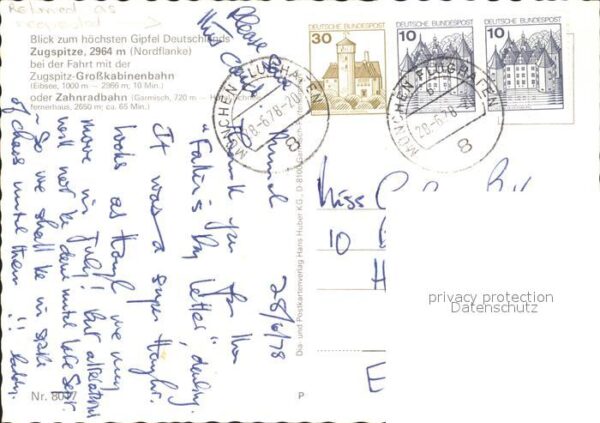 Returned as
requested
Blick zum höchsten Gipfel Deutschlands
Zugspitze, 2964 m (Nordflanke)
bei der Fahrt mit der
Zugspitz-Großkabinenbahn
(Eibsee, 1000 m — 2966 m, 10 Min.)
oder Zahnradbahn (Garmisch, 720 m —
fernerhaus, 2650 m; ca. 65 Min.)
Please Save
this Card
28/6/78
Thank you for the
"Father's Day letter", darling.
It was a super
looks as though we may
move in July! But alterations
will not be done until late Sept.
- So we shall be in state
of chaos until then !!
Nr. 8017
P
Dia- und Postkartenverlag Hans Huber KG., D 8100 Garmisch-
DEUTSCHE BUNDESPOST
30
DEUTSCHE BUNDESPOST
10
DEUTSCHE BUNDESPOST
10
MÜNCHEN FLUGHAFEN
28-6.78-20
8
MÜNCHEN FLUGHAFEN
28-6.78
8
Miss
10
H
E
privacy protection
Datenschutz